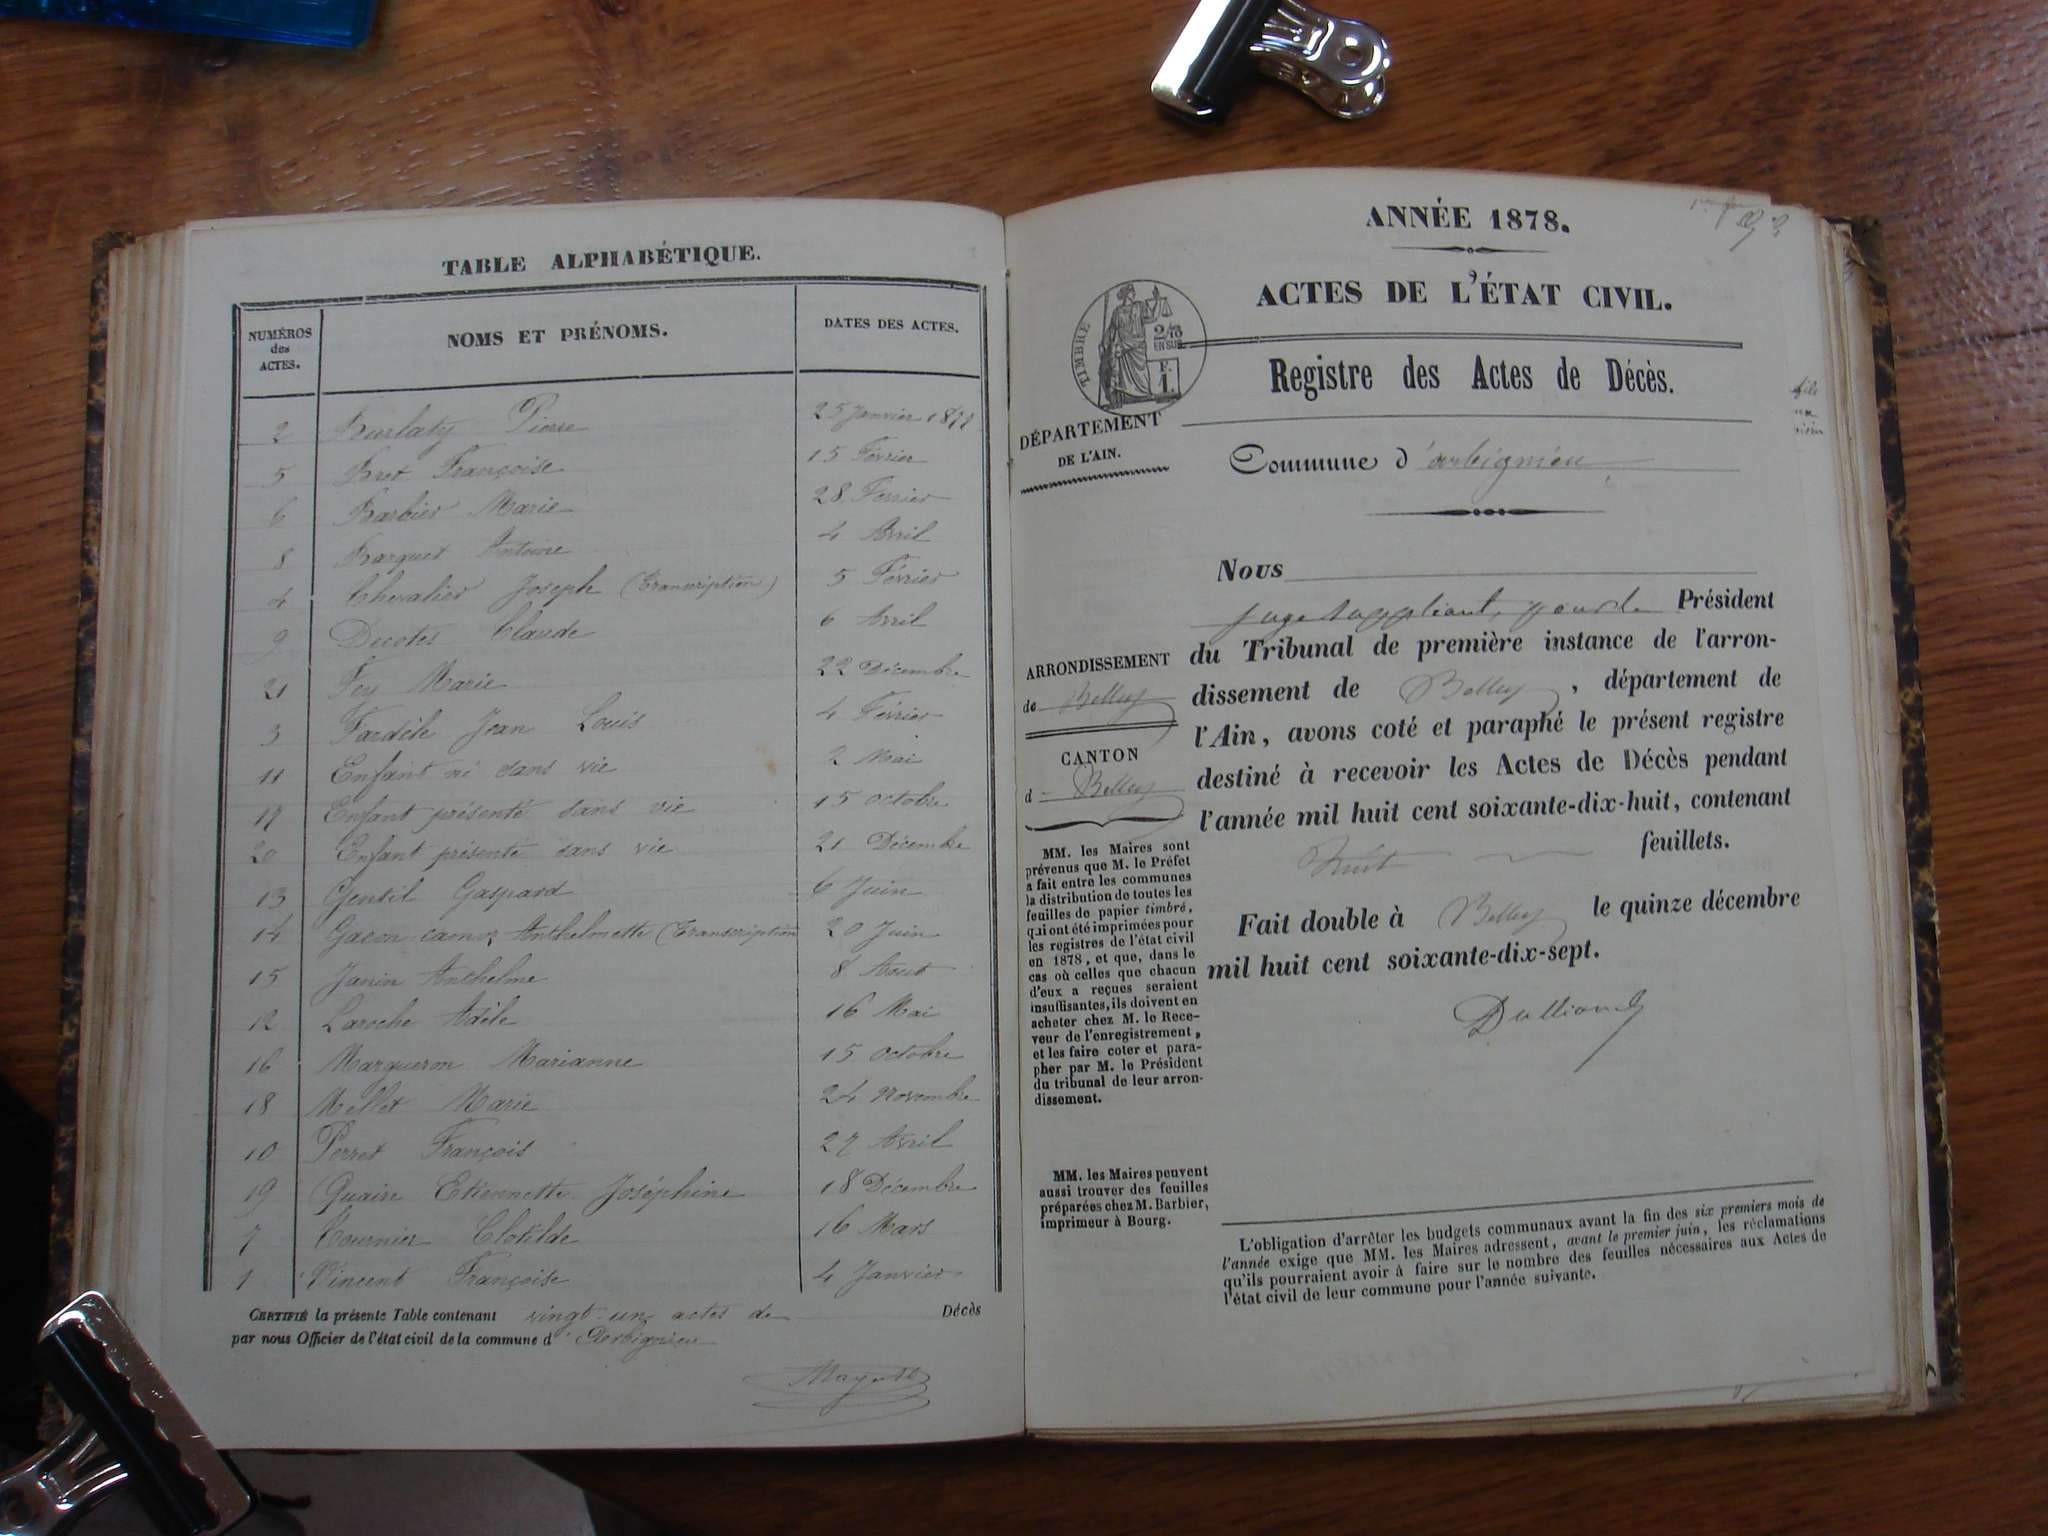 TABLE ALPHABÉTIQUE.
NUMÉROS des ACTES. NOMS ET PRÉNOMS. DATES DES ACTES.
2 Burlaty Pierre 25 Janvier 1877
5 Bret Françoise 15 Février
6 Barbier Marie 28 Fevrier
8 Barquet Antoine 4 Avril
4 Chevalier Joseph (Transcription) 5 Février
9 Decotes Claude 6 Avril
21 Fey Marie 22 Décembre
3 Fardèle Jean Louis 4 Février
11 Enfant né sans vie 2 Mai
17 Enfant présenté sans vie 15 Octobre
20 Enfant présenté sans vie 21 Décembre
13 Gentil Gaspard 6 Juin
14 Gacon-camoz Anthelmette (Transcription 20 Juin
15 Janin Anthelme 8 Aout
12 Laroche Adèle 16 Mai
16 Margueron Marianne 15 Octobre
18 Mellet Marie 24 Novembre
10 Perret François 27 Avril
19 Quaire Etiennette Joséphine 18 Décembre
7 Tournier Clotilde 16 Mars
1 Vincent Françoise 4 Janvier
CERTIFIÉ la présente Table contenant vingt-un actes de Décès
par nous Officier de l'état civil de la commune d' Arbignieu
ANNÉE 1878.
ACTES DE L'ÉTAT CIVIL.
TIMBRE
2/10
EN SUS
F.
1.
Registre des Actes de Décès.
DÉPARTEMENT
DE L'AIN.
Commune d'arbignieu
Nous
juge suppléant, pour le Président
du Tribunal de première instance de l'arron-
dissement de Belley, département de
l'Ain, avons coté et paraphé le présent registre
destiné à recevoir les Actes de Décès pendant
l'année mil huit cent soixante-dix-huit, contenant
huit feuillets.
Fait double à Belley le quinze décembre
mil huit cent soixante-dix-sept.
ARRONDISSEMENT
de Belley
CANTON
d Belley
MM. les Maires sont
prévenus que M. le Préfet
a fait entre les communes
la distribution de toutes les
feuilles de papier timbré,
qui ont été imprimées pour
les registres de l'état civil
en 1878, et que, dans le
cas où celles que chacun
d'eux a reçues seraient
insuffisantes, ils doivent en
acheter chez M. le Rece-
veur de l'enregistrement,
et les faire coter et para-
pher par M. le Président
du tribunal de leur arron-
dissement.
MM. les Maires peuvent
aussi trouver des feuilles
préparées chez M. Barbier,
imprimeur à Bourg.
L'obligation d'arrêter les budgets communaux avant la fin des six premiers mois de
l'année exige que MM. les Maires adressent, avant le premier juin, les réclamations
qu'ils pourraient avoir à faire sur le nombre des feuilles nécessaires aux Actes de
l'état civil de leur commune pour l'année suivante.